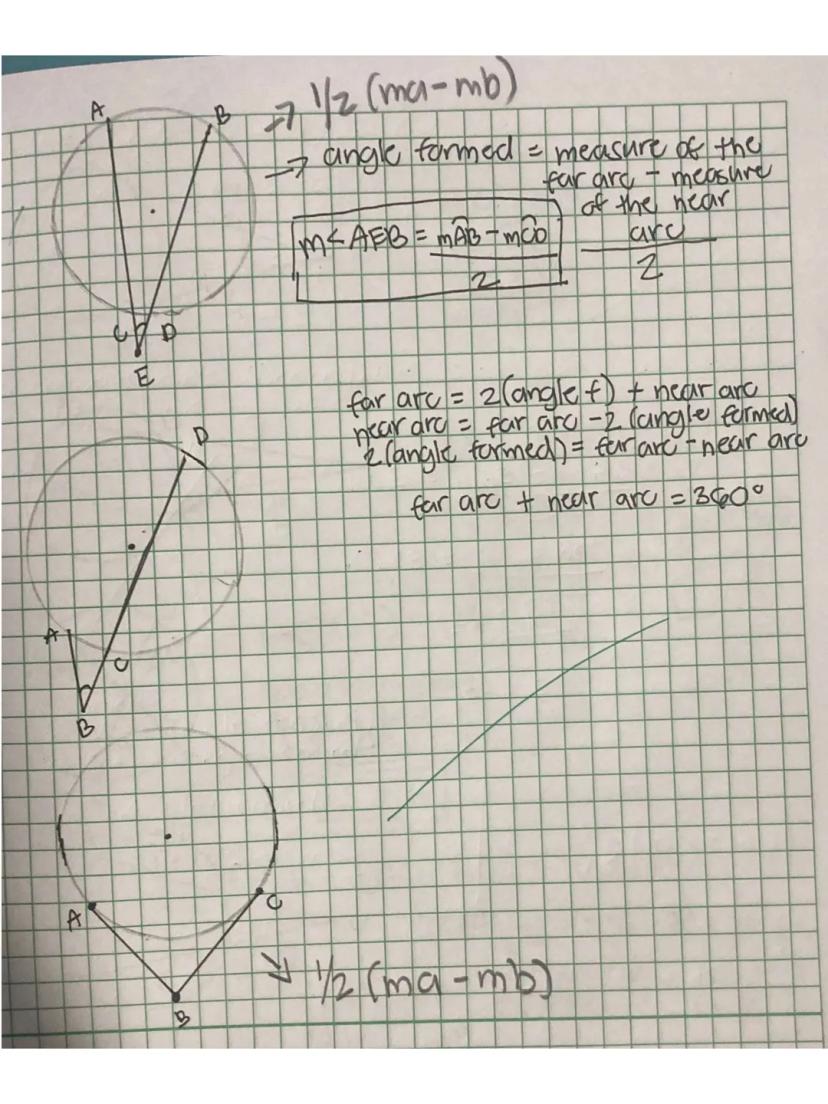 → 1/2 (ma - mb)
A B
→ angle formed = measure of the
far arc - measure
of the near
arc
2
m< AEB = mAB - mCD
2
C D
E
far arc = 2(angle f) + near arc
near arc = far arc - 2 (angle formed)
2(angle formed) = far arc - near arc
far arc + near arc = 360°
D
A
C
B
A C
B
→ 1/2 (ma - mb)